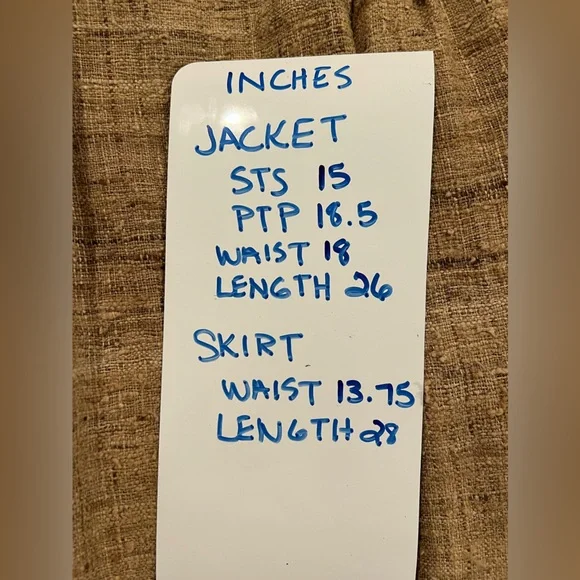 INCHES
JACKET
STS 15
PTP 18.5
WAIST 18
LENGTH 26
SKIRT
WAIST 13.75
LENGTH 28